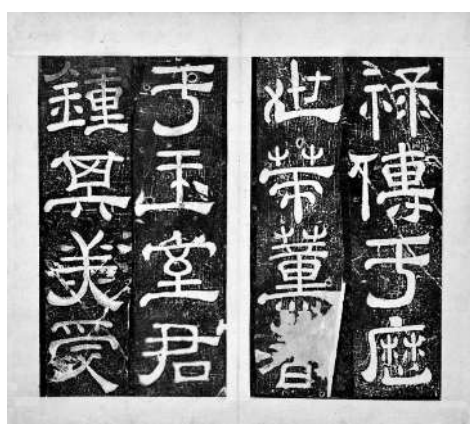 祿傳于曆
世策薰著
于王室君
鍾其美受